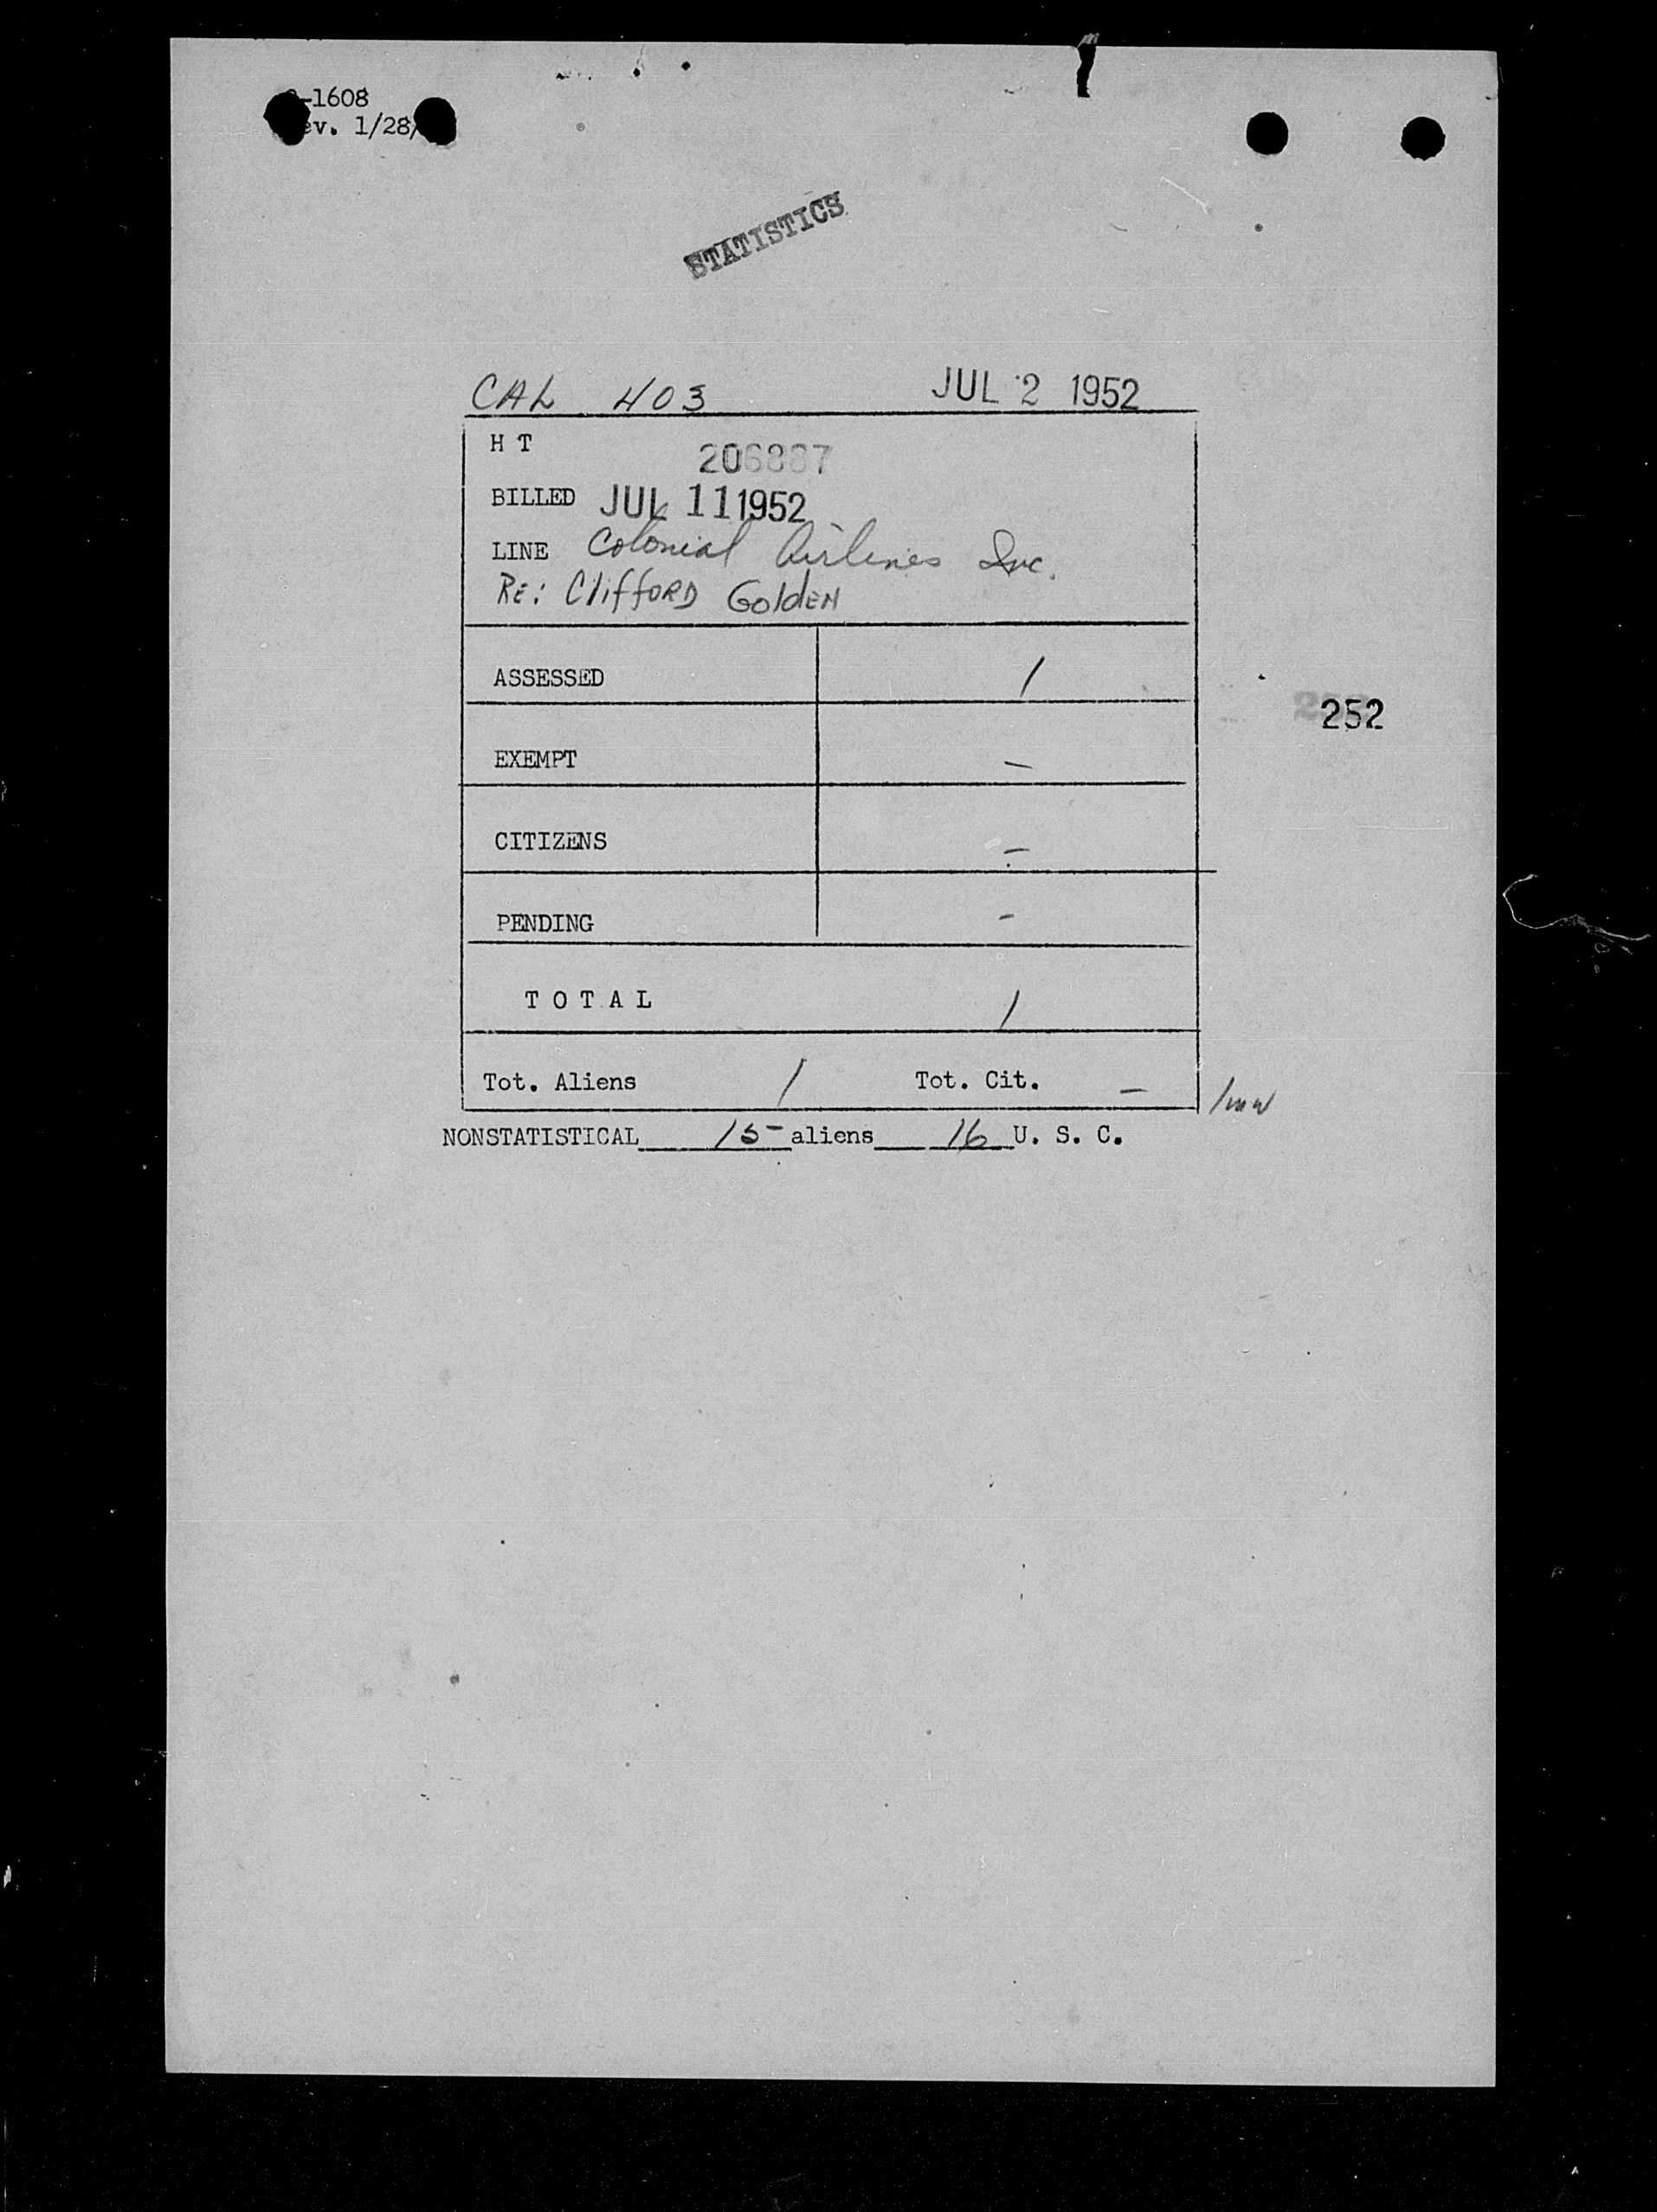 -1608
ev. 1/28/
STATISTICS
CAL 403 JUL 2 1952
H T
BILLED JUL 11 1952
LINE Colonial Airlines Inc.
RE: Clifford Golden
ASSESSED 1
252
EXEMPT –
CITIZENS –
PENDING –
TOTAL 1
Tot. Aliens 1 Tot. Cit. –
NONSTATISTICAL 15 aliens 16 U. S. C.